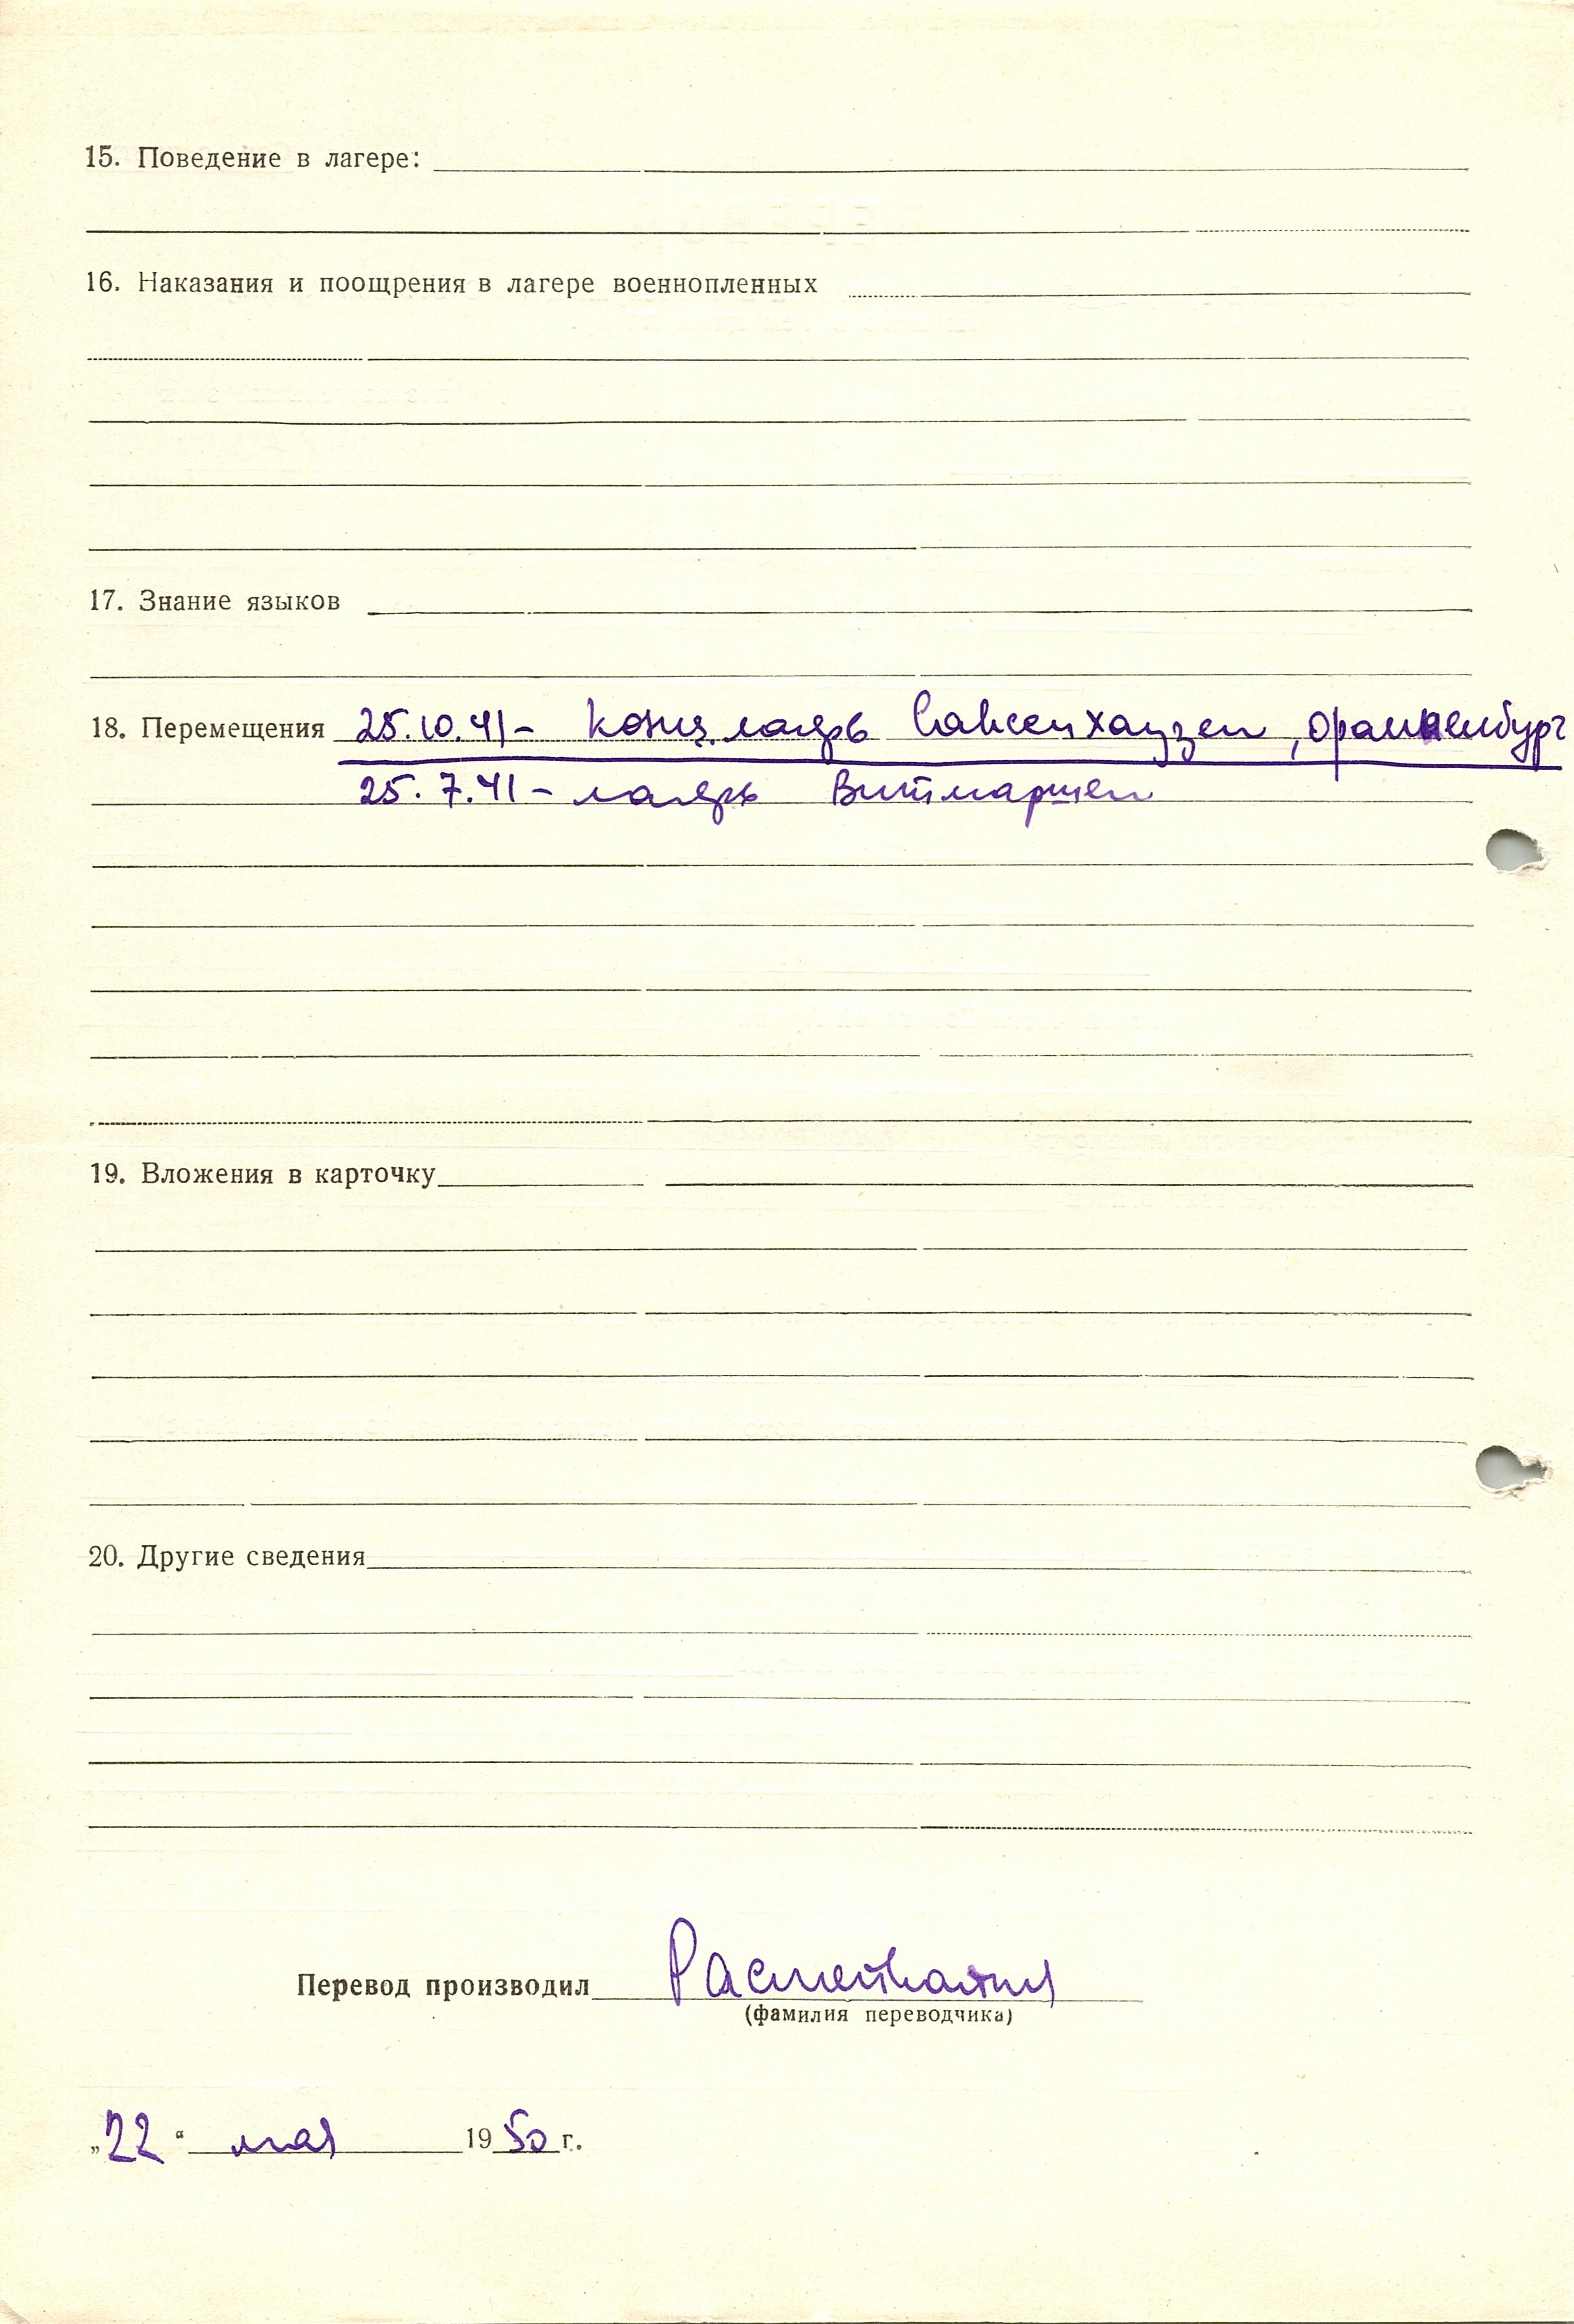 15. Поведение в лагере:
16. Наказания и поощрения в лагере военнопленных
17. Знание языков
18. Перемещения 25.10.41 - Конц. лагерь Саксенхаузен, Ораниенбург
25.7.41 - лагерь Витмаршен
19. Вложения в карточку
20. Другие сведения
Перевод производил
(фамилия переводчика)
„22“ мая 1950 г.